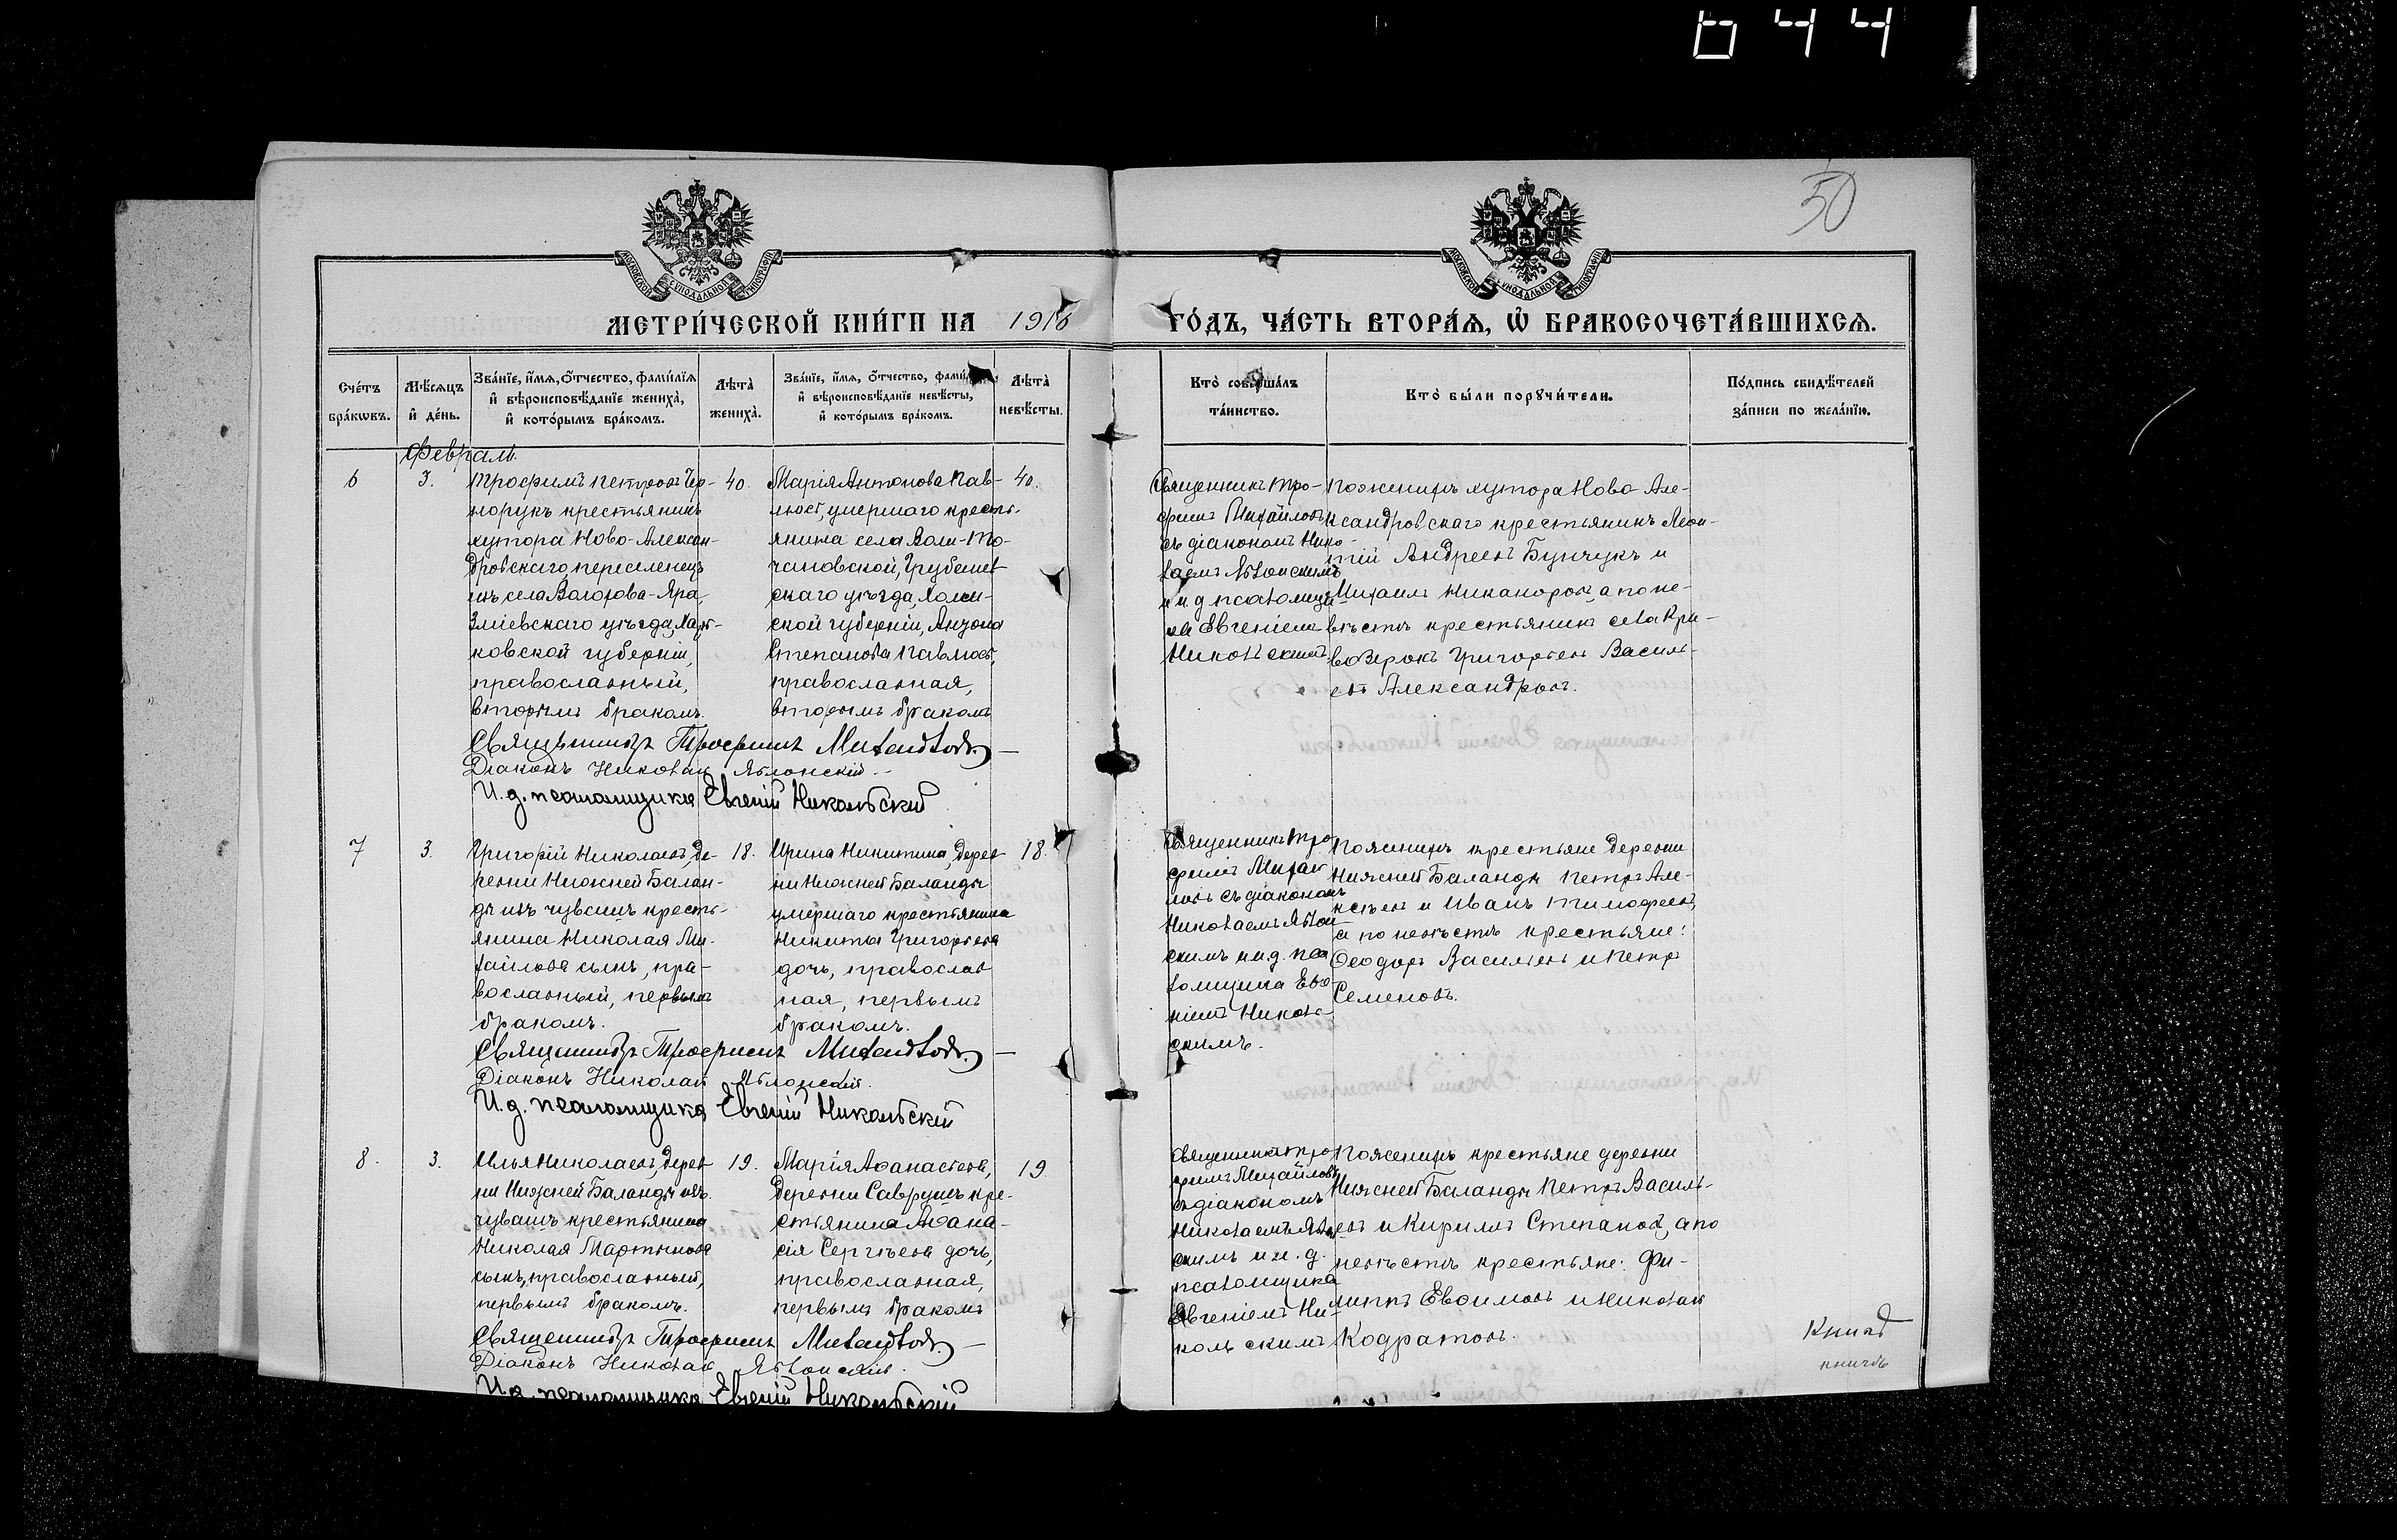 644
50
МОСКОВСКОЙ СѴНОДАЛЬНОЙ ТИПОГРАФІИ
МОСКОВСКОЙ СѴНОДАЛЬНОЙ ТИПОГРАФІИ
МЕТРИ́ЧЕСКОЙ КНИ́ГИ НА 1916 ГО́ДЪ, ЧА́СТЬ ВТОРА́Ѧ, Ѽ БРАКОСОЧЕТА́ВШИХСѦ.
Сче́тъ бра́кѡвъ.
Мѣ́сѧцъ и҆ де́нь.
Зва́нїе, и҆́мѧ, ѻ҆́тчество, фами́лїѧ
и҆ вѣроисповѣ́данїе жениха̀,
и҆ кото́рымъ бра́комъ.
Лѣта̀ жениха̀.
Зва́нїе, и҆́мѧ, ѻ҆́тчество,
и҆ вѣроисповѣ́данїе невѣ́сты,
и҆ кото́рымъ бра́комъ.
Лѣта̀ невѣ́сты.
Кто̀ соверша́лъ та́инство.
Кто̀ бы́ли порꙋчи́тели.
По́дпись свидѣ́телей за́писи по жела́нїю.
Февраль.
6
3.
Трофимъ Петровъ Чер-
норукъ крестьянинъ
хутора Ново-Алексан-
дровскаго переселенецъ
изъ села Волохова-Яра,
Зміевскаго уѣзда, Харь-
ковской губерніи,
православный,
вторымъ бракомъ.
40.
Марія Антонова Пав-
люсъ, умершаго кресть-
янина села Воли-
чановской, Грубешев
скаго уѣзда, Холм-
ской губерніи, Антона
Степанова Павлюсъ,
православная,
вторымъ бракомъ
40.
Священникъ Тро-
фимъ Михайловъ
съ діакономъ Нико-
лаемъ Яблонскимъ
и и.д. псаломщи-
ка Евгеніемъ
Никольскимъ
По женихѣ хутора Ново-Але-
ксандровскаго крестьянинъ Леон-
тій Андреевъ Бунчукъ и
Михаилъ Никаноровъ, а по не-
вѣстѣ крестьянинъ села Кри-
воозерокъ Григорьевъ Василь-
евъ Александровъ.
Священникъ Трофимъ Михайловъ
Діаконъ Николай Яблонскій
И.д. псаломщика Евгеній Никольскій
7
3.
Григорій Николаевъ, де-
ревни Нижней Балан-
ды изъ чувашъ кресть-
янина Николая Ми-
хайлова сынъ, пра-
вославный, первымъ
бракомъ.
18.
Ирина Никитина, дерев
ни Нижней Баланды
умершаго крестьянина
Никиты Григорьева
дочь, православ
ная, первымъ
бракомъ.
18.
Священникъ Тро
фимъ Михай
ловъ съ діакономъ
Николаемъ Яблон
скимъ и и.д. пса
ломщика Евге-
ніемъ Николь
скимъ.
По женихѣ крестьяне деревни
Нижней Баланды Петръ Але-
ксѣевъ и Иванъ Тимофеевъ,
а по невѣстѣ крестьяне:
Ѳеодоръ Васильевъ и Петръ
Семеновъ.
Священникъ Трофимъ Михайловъ
Діаконъ Николай Яблонскій.
И.д. псаломщика Евгеній Никольскій
8.
3.
Илья Николаевъ, дерев
ни Нижней Баланды изъ
чувашъ крестьянина
Николая Мартынова
сынъ, православный,
первымъ бракомъ.
19.
Марія Аѳанасіева,
деревни Саврушъ кре-
стьянина Аѳана-
сія Сергѣева дочь,
православная,
первымъ бракомъ
19
Священникъ Тро
фимъ Михайловъ
съ діакономъ
Николаемъ Яблон
скимъ и и.д.
псаломщика
Евгеніемъ Ни-
кольскимъ
По женихѣ крестьяне деревни
Нижней Баланды Петръ Василь-
евъ и Кирилъ Степановъ, а по
невѣстѣ крестьяне: Фи-
липпъ Евѳимовъ и Николай
Кодратовъ.
Священникъ Трофимъ Михайловъ
Діаконъ Николай Яблонскій.
И.д. псаломщика Евгеній Никольскій